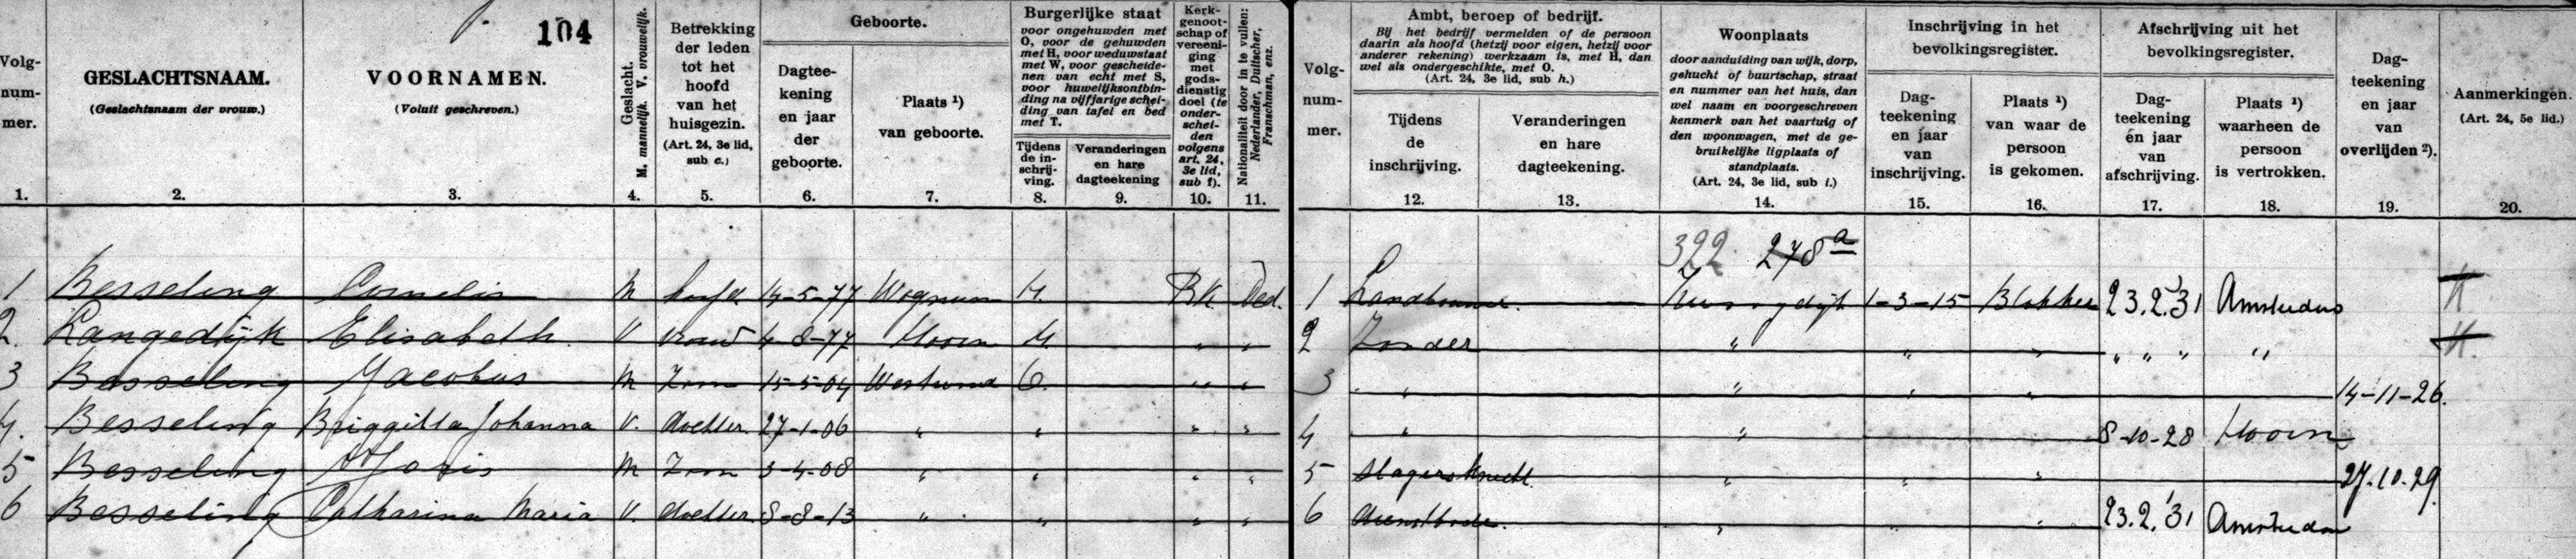 104
Volg-
num-
mer.
1.
GESLACHTSNAAM.
(Geslachtsnaam der vrouw.)
2.
VOORNAMEN.
(Voluit geschreven.)
3.
Geslacht.
M. mannelijk. V. vrouwelijk.
4.
Betrekking
der leden
tot het
hoofd
van het
huisgezin.
(Art. 24, 3e lid,
sub c.)
5.
Geboorte.
Dagtee-
kening
en jaar
der
geboorte.
6.
Plaats ¹)
van geboorte.
7.
Burgerlijke staat
voor ongehuwden met
O, voor de gehuwden
met H, voor weduwstaat
met W, voor gescheide-
nen van echt met S,
voor huwelijksontbin-
ding na vijfjarige schei-
ding van tafel en bed
met T.
Tijdens
de in-
schrij-
ving.
8.
Veranderingen
en hare
dagteekening
9.
Kerk-
genoot-
schap of
vereeni-
ging
met
gods-
dienstig
doel (te
onder-
schei-
den
volgens
art. 24,
3e lid,
sub f).
10.
Nationaliteit door in te vullen:
Nederlander, Duitscher,
Franschman, enz.
11.
Volg-
num-
mer.
Ambt, beroep of bedrijf.
Bij het bedrijf vermelden of de persoon
daarin als hoofd (hetzij voor eigen, hetzij voor
anderer rekening) werkzaam is, met H, dan
wel als ondergeschikte, met O.
(Art. 24, 3e lid, sub h.)
Tijdens
de
inschrijving.
12.
Veranderingen
en hare
dagteekening.
13.
Woonplaats
door aanduiding van wijk, dorp,
gehucht of buurtschap, straat
en nummer van het huis, dan
wel naam en voorgeschreven
kenmerk van het vaartuig of
den woonwagen, met de ge-
bruikelijke ligplaats of
standplaats.
(Art. 24, 3e lid, sub i.)
14.
Inschrijving in het
bevolkingsregister.
Dag-
teekening
en jaar
van
inschrijving.
15.
Plaats ¹)
van waar de
persoon
is gekomen.
16.
Afschrijving uit het
bevolkingsregister.
Dag-
teekening
én jaar
van
afschrijving.
17.
Plaats ¹)
waarheen de
persoon
is vertrokken.
18.
Dag-
teekening
en jaar
van
overlijden ²).
19.
Aanmerkingen.
(Art. 24, 5e lid.)
20.
322 278a
1 Besseling Cornelis M hoofd 14-5-77 Wognum H. RK. Ned. 1 Landbouwer. 1-3-15 Blokker 23.2.'31 Amsterdam
2. Langedijk Elisabeth V vrouw 4-8-77 Hoorn H " " 2 Zonder " " " " " " "
3 Besseling Jacobus M Zoon 15-5-04 Westwoud O. " " 3 " " " " 14-11-26.
4. Besseling Briggitta Johanna V. dochter. 27-1-06 " " " " 4 " " 8-10-28 Hoorn
5 Besseling Joris M Zoon 3-4-08 " " " " 5 slagersknecht " " " 27.10.29
6 Besseling Catharina Maria V. dochter. 8-8-13 " " " " 6 dienstbode. " " 23.2.'31 Amsterdam